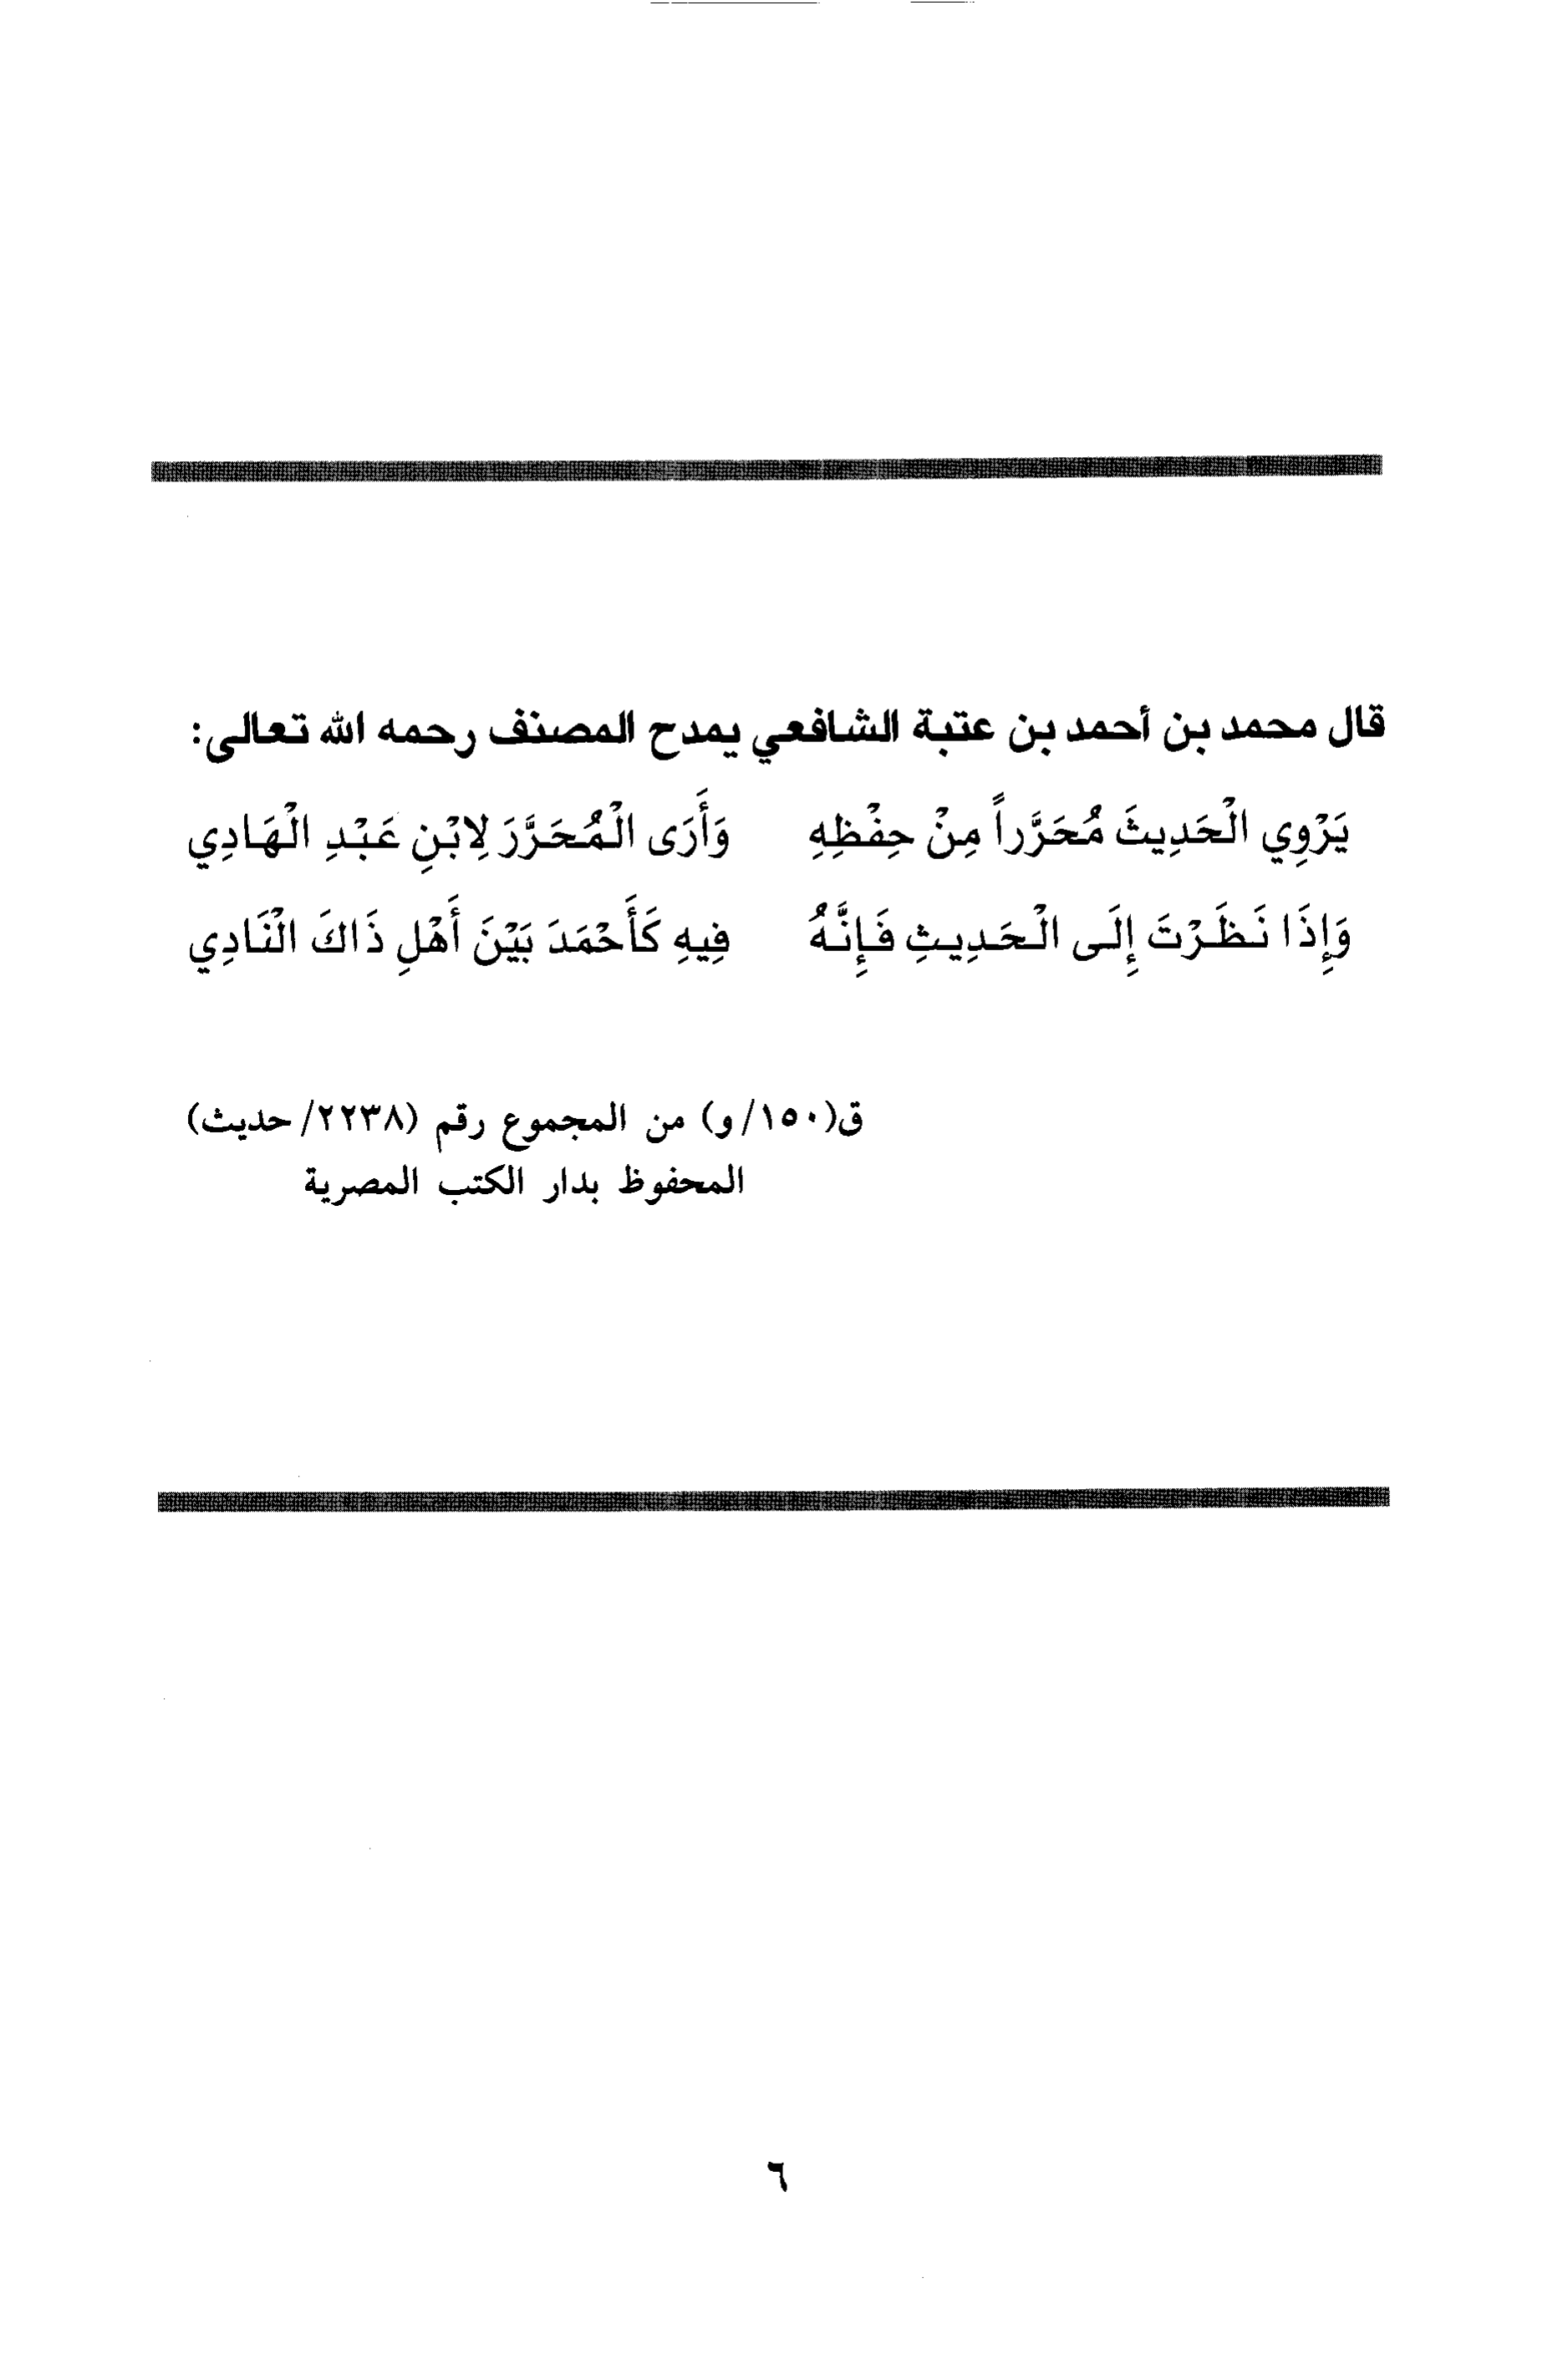 قال محمد بن أحمد بن عتبة الشافعي يمدح المصنف رحمه الله تعالى:
يَرْوِي الْحَدِيثَ مُحَرَّراً مِنْ حِفْظِهِ وَأَرَى الْمُحَرَّرَ لِابْنِ عَبْدِ الْهَادِي
وَإِذَا نَظَرْتَ إِلَى الْحَدِيثِ فَإِنَّهُ فِيهِ كَأَحْمَدَ بَيْنَ أَهْلِ ذَاكَ الْنَادِي
ق(١٥٠/و) من المجموع رقم (٢٢٣٨/حديث)
المحفوظ بدار الكتب المصرية
٦